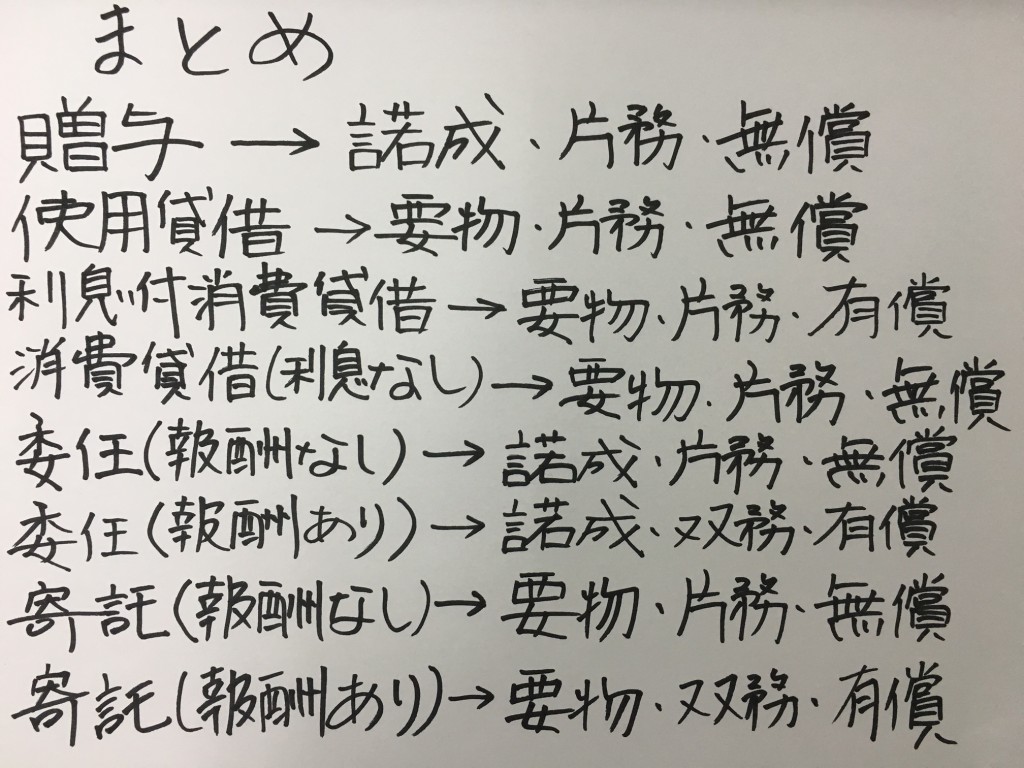 まとめ
贈与→諾成、片務・無償
使用貸借→要物・片務・無償
利息付消費貸借→要物・片務・有償
消費貸借(利息なし)→要物・片務・無償
委任(報酬なし)→諾成・片務・無償
委任(報酬あり)→諾成・双務・有償
寄託(報酬なし)→要物・片務・無償
寄託(報酬あり)→要物・双務・有償